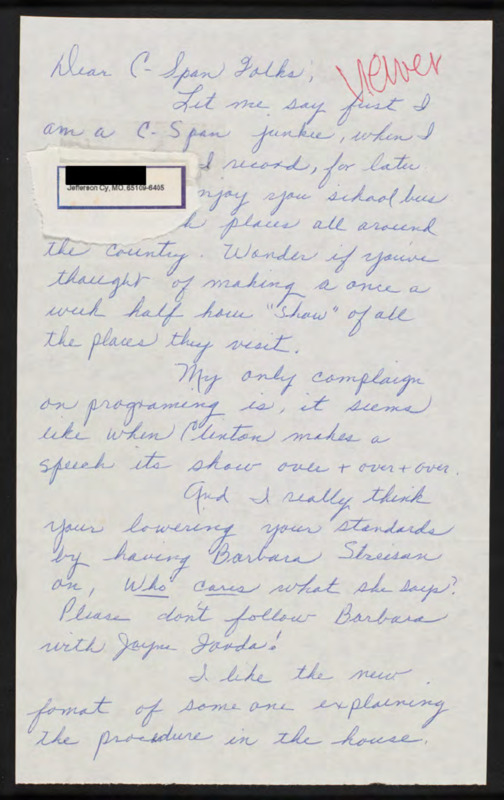 Dear C-Span Folks,
viewer
Let me say first I
am a C-Span junkie, when I
I record, for later
Jefferson Cy, MO. 65109-6405
njoy you school bus
h places all around
the country. Wonder if you've
thought of making a once a
week half hour "show" of all
the places they visit.
My only complaign
on programing is, it seems
like when Clinton makes a
speech its show over + over + over.
And I really think
your lowering your standards
by having Barbara Streisan
on, Who cares what she says?
Please don't follow Barbara
with Jayne Fonda!
I like the new
fomat of some one explaining
the procedure in the house.